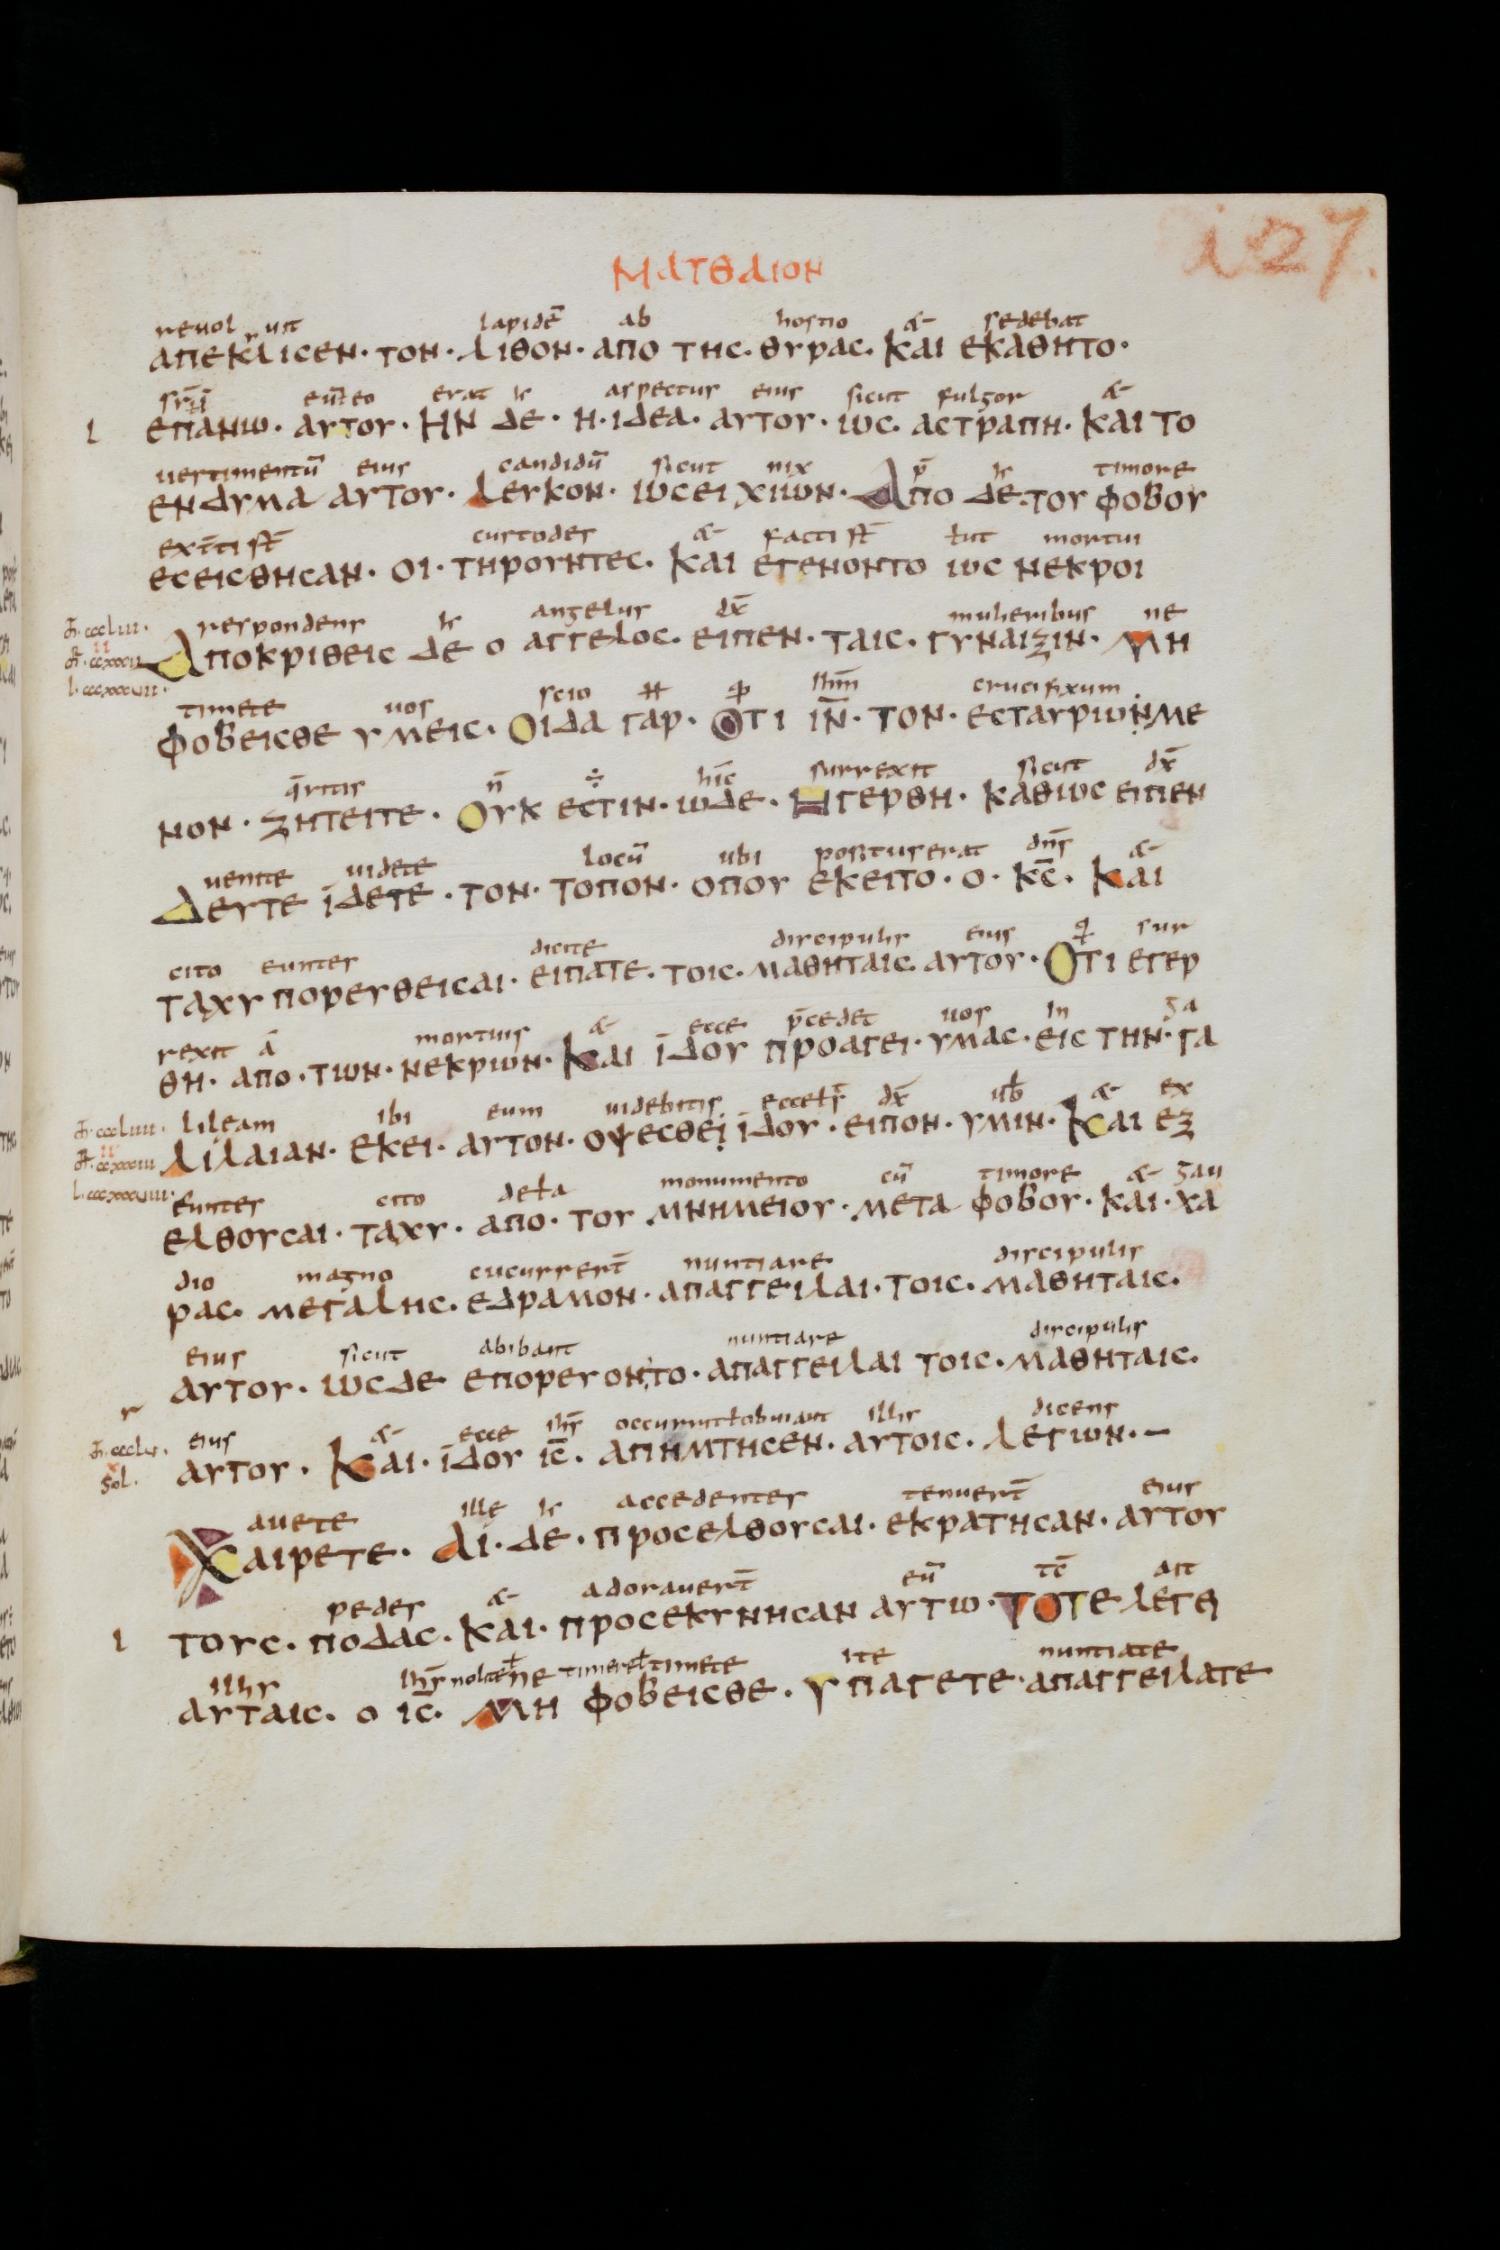 ΜΑΤΘΑΙΟΝ
i27.
reuoluit lapidē ab hostio & sedebat
ΑΠΕΚΛΙCΕΝ· ΤΟΝ· ΛΙΘΟΝ· ΑΠΟ ΤΗC· ΘΥΡΑC· ΚΑΙ ΕΚΑΘΗΤΟ·
erat aspectus eius sicut fulgor &
ΕΠΑΝΩ· ΑΥΤΟΥ· ΗΝ ΔΕ· Η· ΙΔΕΑ· ΑΥΤΟΥ· ΩC· ΑCΤΡΑΠΗ· ΚΑΙ ΤΟ
uestimentū eius candidū sicut nix timore
ΕΝΔΥΜΑ ΑΥΤΟΥ· ΛΕΥΚΟΝ· ΩCΕΙ ΧΙΩΝ· ΑΠΟ ΔΕ· ΤΟΥ ΦΟΒΟΥ
custodes & facti sт̄ mortui
ΕCΕΙCΘΗCΑΝ· ΟΙ· ΤΗΡΟΥΝΤΕC· ΚΑΙ ΕΓΕΝΟΝΤΟ ΩC ΝΕΚΡΟΙ
respondens angelus dx̄ mulieribus ne
ΑΠΟΚΡΙΘΕΙC ΔΕ Ο ΑΓΓΕΛΟC· ΕΙΠΕΝ· ΤΑΙC· ΓΥΝΑΙΞΙΝ· ΜΗ
timete uos scio crucifixum
ΦΟΒΕΙCΘΕ ΥΜΕΙC· ΟΙΔΑ ΓΑΡ· ΟΤΙ ΙΝ̄· ΤΟΝ· ΕCΤΑΥΡΩΝΜΕ
q̄ritis n̄ ÷ hic surrexit sicut dx̄
ΝΟΝ· ΖΗΤΕΙΤΕ· ΟΥΚ ΕCΤΙΝ· ΩΔΕ· ΗΓΕΡΘΗ· ΚΑΘΩC ΕΙΠΕΝ
uenite uidete locū ubi positus erat dn̄s &
ΔΕΥΤΕ ΙΔΕΤΕ· ΤΟΝ· ΤΟΠΟΝ· ΟΠΟΥ ΕΚΕΙΤΟ· Ο· ΚC̄· ΚΑΙ
cito euntes dicite discipulis eius sur
ΤΑΧΥ ΠΟΡΕΥΘΕΙCΑΙ· ΕΙΠΑΤΕ· ΤΟΙC· ΜΑΘΗΤΑΙC· ΑΥΤΟΥ· ΟΤΙ ΕΓΕΡ
rexit ā mortuis & ecce p̄cedet uos in ga
ΘΗ· ΑΠΟ· ΤΩΝ· ΝΕΚΡΩΝ· ΚΑΙ ΙΔΟΥ ΠΡΟΑΓΕΙ· ΥΜΑC· ΕΙC ΤΗΝ· ΓΑ
lileam ibi eum uidebitis dx̄ & ex
ΛΙΛΑΙΑΝ· ΕΚΕΙ· ΑΥΤΟΝ· ΟΨΕCΘΕΙ ΙΔΟΥ· ΕΙΠΟΝ· ΥΜΙΝ· ΚΑΙ ΕΞ
euntes cito monumento cū timore & gau
ΕΛΘΟΥCΑΙ· ΤΑΧΥ· ΑΠΟ· ΤΟΥ ΜΝΗΜΕΙΟΥ· ΜΕΤΑ ΦΟΒΟΥ· ΚΑΙ· ΧΑ
dio magno cucurrert̄ nuntiare discipulis
ΡΑC· ΜΕΓΑΛΗC· ΕΔΡΑΜΟΝ· ΑΠΑΓΓΕΙΛΑΙ· ΤΟΙC· ΜΑΘΗΤΑΙC·
eius sicut abibant nuntiare discipulis
ΑΥΤΟΥ· ΩCΔΕ ΕΠΟΡΕΥΟΝΤΟ· ΑΠΑΓΓΕΙΛΑΙ ΤΟΙC· ΜΑΘΗΤΑΙC·
eius & ecce ihs̄ illis dicens
ΑΥΤΟΥ· ΚΑΙ· ΙΔΟΥ ΙC̄· ΑΠΗΜΤΗCΕΝ· ΑΥΤΟΙC· ΛΕΓΩΝ·–
auete ille accedentes tenuert̄ eius
ΧΑΙΡΕΤΕ· ΑΙ· ΔΕ· ΠΡΟCΕΛΘΟΥCΑΙ· ΕΚΡΑΤΗCΑΝ· ΑΥΤΟΥ
pedes & adorauert̄ eū tc̄ ait
ΤΟΥC· ΠΟΔΑC· ΚΑΙ· ΠΡΟCΕΚΥΝΗCΑΝ ΑΥΤΩ· ΤΟΤΕ ΛΕΓΕΙ
illis ihs̄ timete ite nuntiate
ΑΥΤΑΙC· Ο ΙC̄· ΜΗ ΦΟΒΕΙCΘΕ· ΥΠΑΓΕΤΕ· ΑΠΑΓΓΕΙΛΑΤΕ